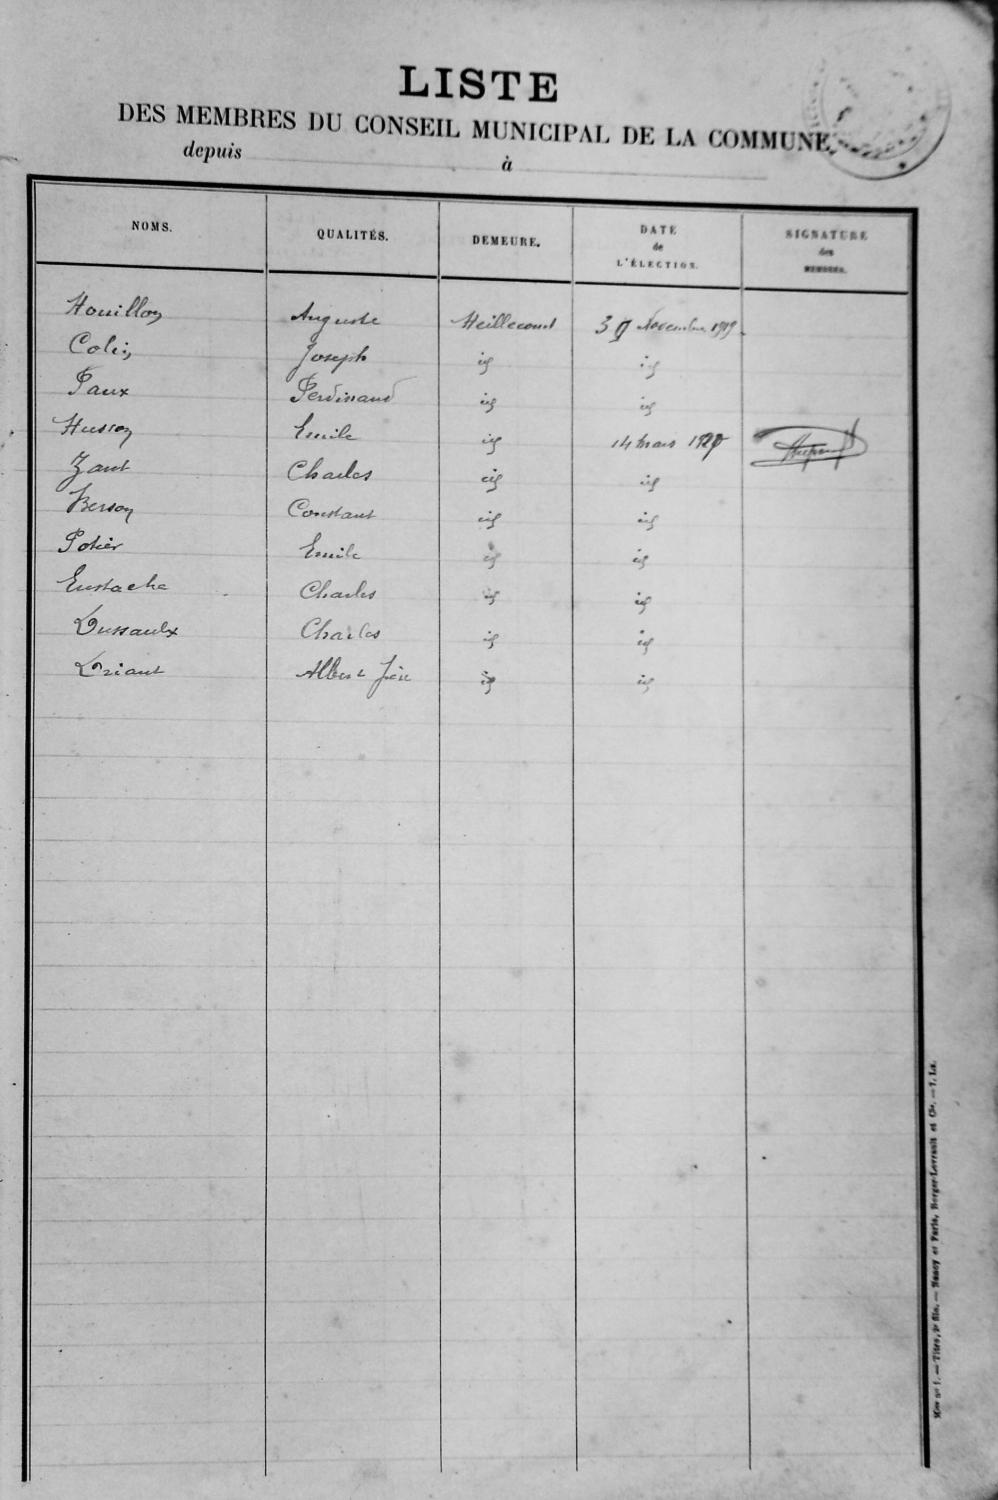 LISTE
DES MEMBRES DU CONSEIL MUNICIPAL DE LA COMMUNE,
depuis à
NOMS. QUALITÉS. DEMEURE. DATE de L'ÉLECTION. SIGNATURE des MEMBRES.
Houillon Auguste Heillecourt 30 Novembre 1919
Colin Joseph id id
Paux Ferdinand id id
Husson Emile id 14 mars
Zant Charles id id
Berson Constant id id
Potier Emile id id
Eustache Charles id id
Dussaulx Charles id id
Driant Albert id id
Nancy et Paris, Berger-Levrault et Cie.